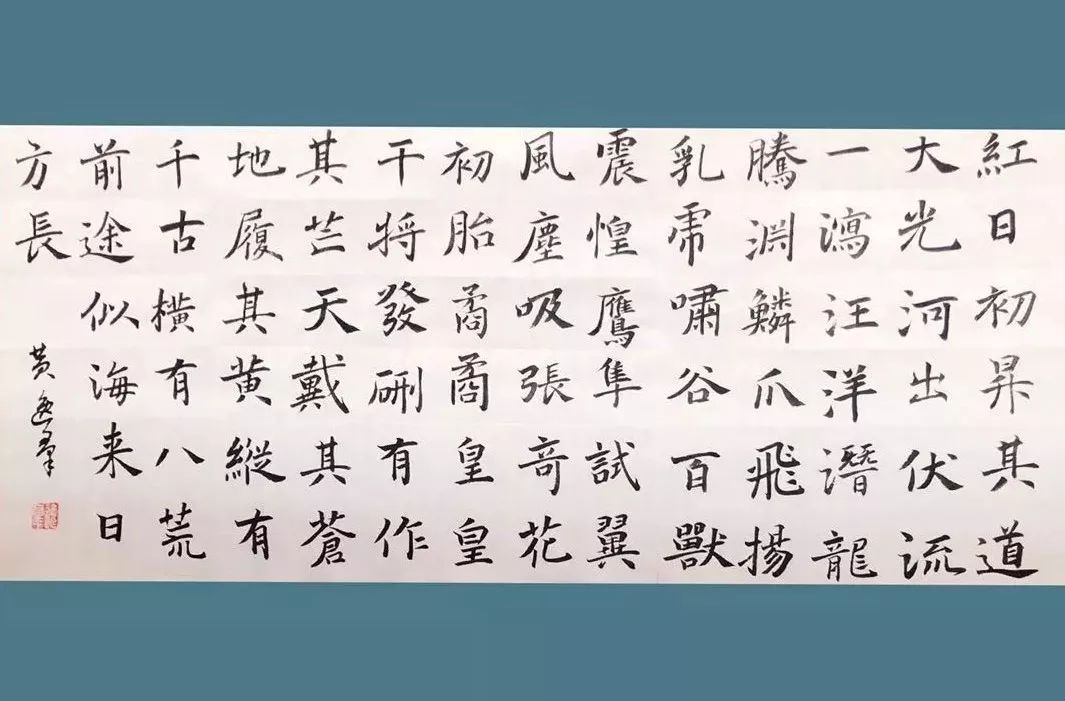 紅日初昇其道
大光河出伏流
一瀉汪洋潛龍
騰淵鱗爪飛揚
乳虎嘯谷百獸
震惶鷹隼試翼
風塵吸張奇花
初胎矞矞皇皇
干將發硎有作
其芒天戴其蒼
地履其黄縱有
千古横有八荒
前途似海来日
方長
黄